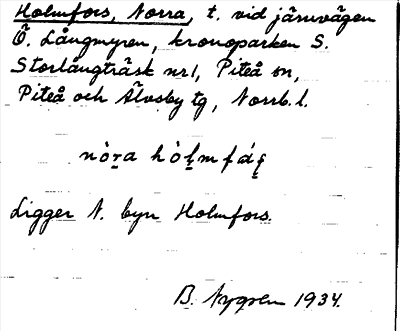 Holmfors, Norra, t. vid järnvägen
Ö. Långmyren, kronoparken S.
Storlångträsk nr 1, Piteå sn,
Piteå och Älvsby tg, Norrb. l.
Ligger N. byn Holmfors.
B. Nygren 1934.